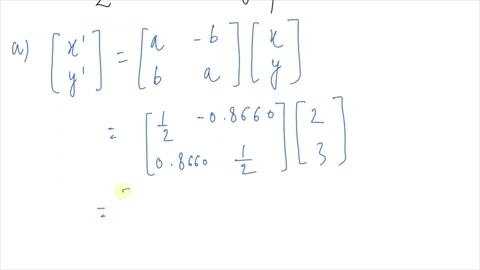 a) [x' y'] = [a -b b a] [x y]
= [1/2 -0.8660 0.8660 1/2] [2 3]
=